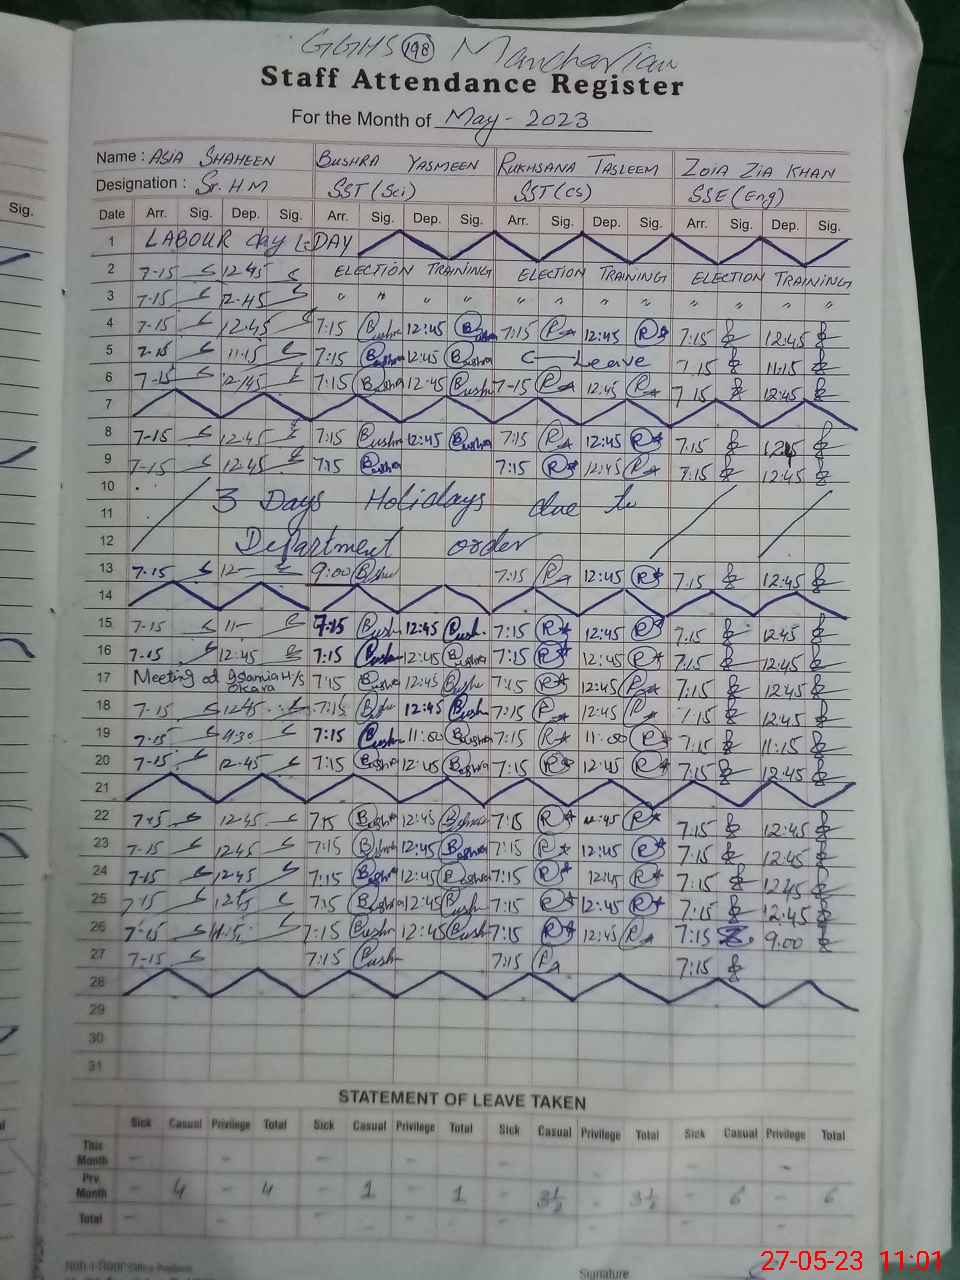 GGHS 198 Mancharian
Staff Attendance Register
For the Month of May - 2023
Name : ASIA SHAHEEN BUSHRA YASMEEN RUKHSANA TASLEEM ZOIA ZIA KHAN
Designation : Sr. HM SST (Sci) SST (CS) SSE (Eng)
Sig.
Date Arr. Sig. Dep. Sig. Arr. Sig. Dep. Sig. Arr. Sig. Dep. Sig. Arr. Sig. Dep. Sig.
1 LABOUR day DAY
2 7-15 12-45 ELECTION TRAINING ELECTION TRAINING ELECTION TRAINING
3 7-15 12-45 " " " " " " " " " " " "
4 7-15 12-45 7:15 Bushra 12:45 Bushra 7:15 R 12:45 R 7:15 12:45
5 7-15 11-15 7:15 Bushra 12:45 Bushra C Leave 7:15 11:15
6 7-15 12-45 7:15 Bushra 12:45 Bushra 7-15 R 12:45 R 7:15 12:45
7
8 7-15 12-45 7:15 Bushra 12:45 Bushra 7:15 R 12:45 R 7:15 12:45
9 7-15 12-45 7:15 Bushra 7:15 R 12:45 R 7:15 12:45
10 3 Days Holidays due to
11
12 Department order
13 7-15 12- 9:00 Bushra 7:15 R 12:45 R 7:15 12:45
14
15 7-15 11- 7:15 Bushra 12:45 Bushra 7:15 R 12:45 R 7:15 12:45
16 7-15 12-45 7:15 Bushra 12:45 Bushra 7:15 R 12:45 R 7:15 12:45
17 Meeting at Islamia H/S Okara 7:15 Bushra 12:45 Bushra 7:15 R 12:45 R 7:15 12:45
18 7-15 12-45 7:15 Bushra 12:45 Bushra 7:15 R 12:45 R 7:15 12:45
19 7-15 11-30 7:15 Bushra 11:00 Bushra 7:15 R 11:00 R 7:15 11:15
20 7-15 12-45 7:15 Bushra 12:45 Bushra 7:15 R 12:45 R 7:15 12:45
21
22 7-15 12-45 7:15 Bushra 12:45 Bushra 7:15 R 12:45 R 7:15 12:45
23 7-15 12-45 7:15 Bushra 12:45 Bushra 7:15 R 12:45 R 7:15 12:45
24 7-15 12-45 7:15 Bushra 12:45 Bushra 7:15 R 12:45 R 7:15 12:45
25 7-15 7:15 Bushra 12:45 Bushra 7:15 R 12:45 R 7:15 12:45
26 7-15 7:15 Bushra 12:45 Bushra 7:15 R 12:45 R 7:15 9:00
27 7-15 7:15 Bushra 7:15 R 7:15
28
29
30
31
STATEMENT OF LEAVE TAKEN
Sick Casual Privilege Total Sick Casual Privilege Total Sick Casual Privilege Total Sick Casual Privilege Total
This Month - - - - - -
Prv. Month - 4 - 4 - 1 - 1 - 3½ - 3½ - 6 - 6
Total - - - - - - - -
Signature
27-05-23 11:01